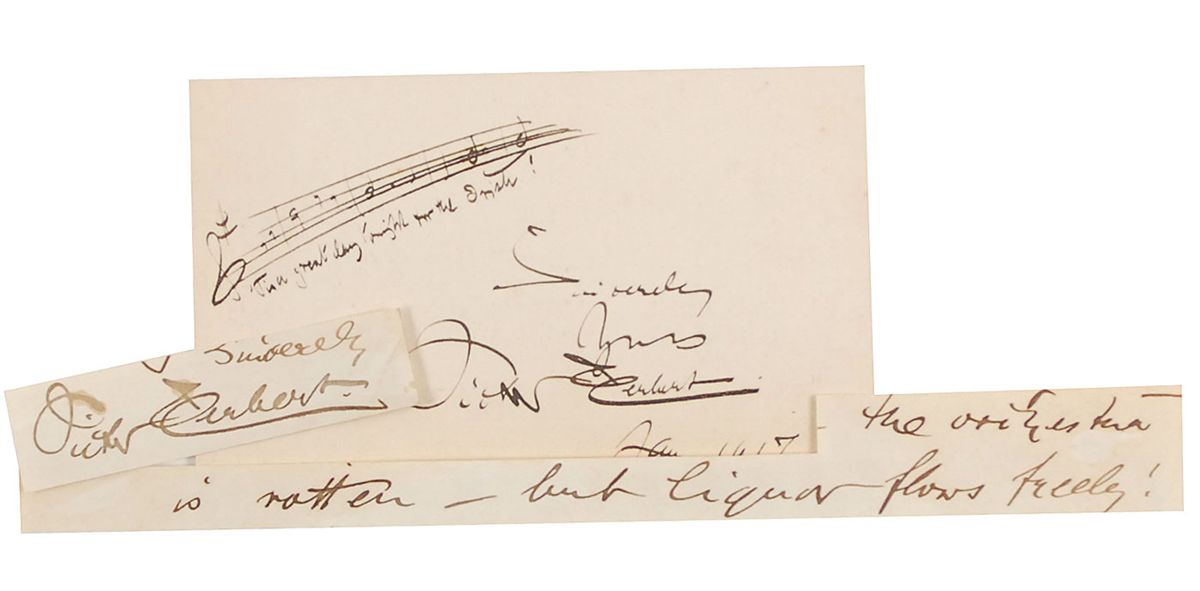 'Tis a great day tonight for the Irish!
Sincerely
Yours
Victor Herbert
Jan 1917
Sincerely
Victor Herbert.
the orchestra
is rotten – but liquor flows freely!